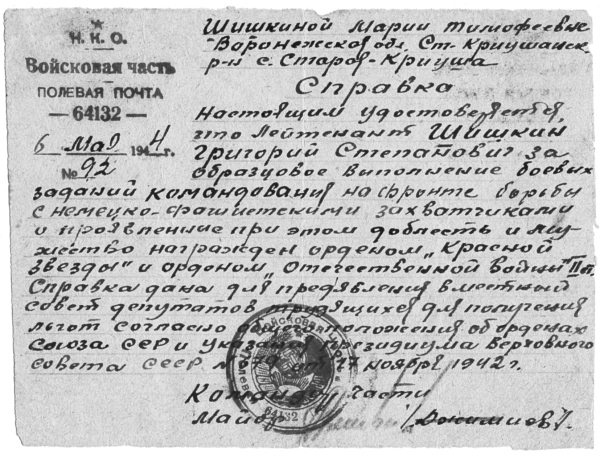 Н. К. О.
Войсковая часть
ПОЛЕВАЯ ПОЧТА
— 64132 —
6 мая 1944 г.
№ 92
Шишкиной Марии Тимофеевне
Воронежской обл. Ст-Криушанск
р-н с. Старая-Криуша
Справка
Настоящим удостоверяется,
что Лейтенант Шишкин
Григорий Степанович за
образцовое выполнение боевых
заданий командования на фронте борьбы
с немецко-фашистскими захватчиками
и проявленние при этом доблесть и му-
жество награжден орденом „Красной
Звезды" и орденом „Отечественной Войны" II ст.
Справка дана для предявления в местный
совет депутатов трудящихся для получения
льгот согласно положения об орденах
Союза ССР и указания президиума Верховного
совета СССР от 17 ноября 1942 г.
Командир части
Майор
64132